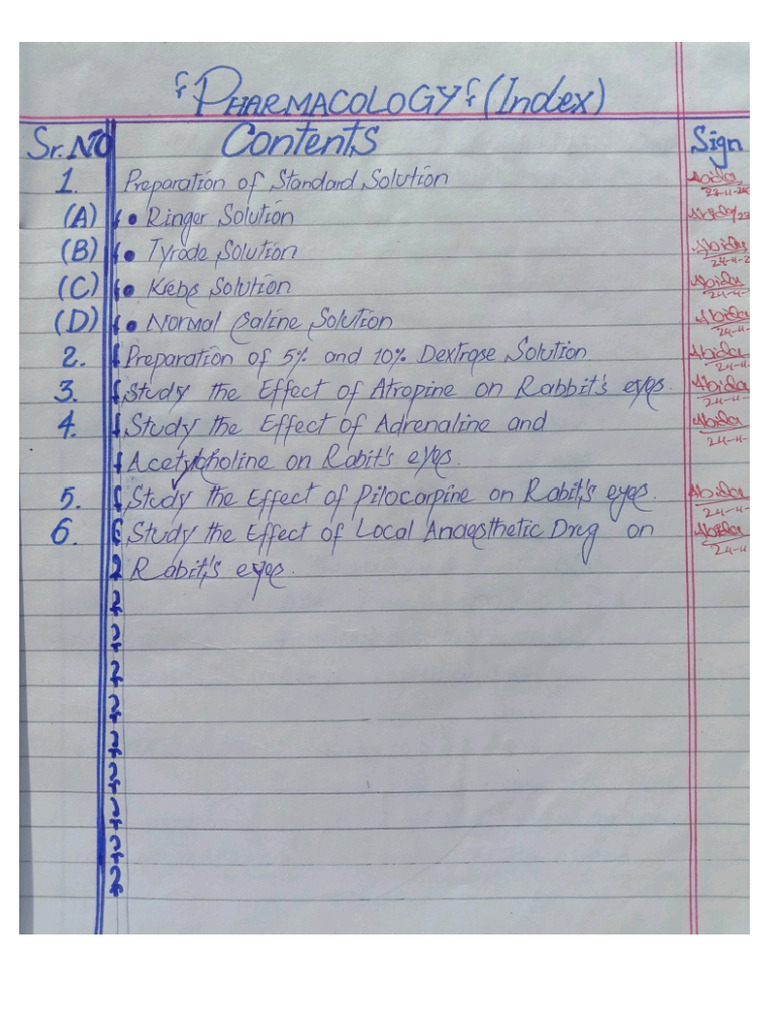 "PHARMACOLOGY" (Index)
Sr.NO Contents Sign
1. Preparation of Standard Solution Abida
(A) • Ringer Solution
(B) • Tyrode Solution Abida
(C) • Krebs Solution Abida
(D) • Normal Saline Solution Abida
2. Preparation of 5% and 10% Dextrose Solution. Abida
3. Study the Effect of Atropine on Rabbit's eyes. Abida
4. Study the Effect of Adrenaline and Abida
Acetylcholine on Rabit's eyes.
5. Study the Effect of Pilocarpine on Rabit's eyes. Abida
6. Study the Effect of Local Anaesthetic Drug on Abida
Rabit's eyes.